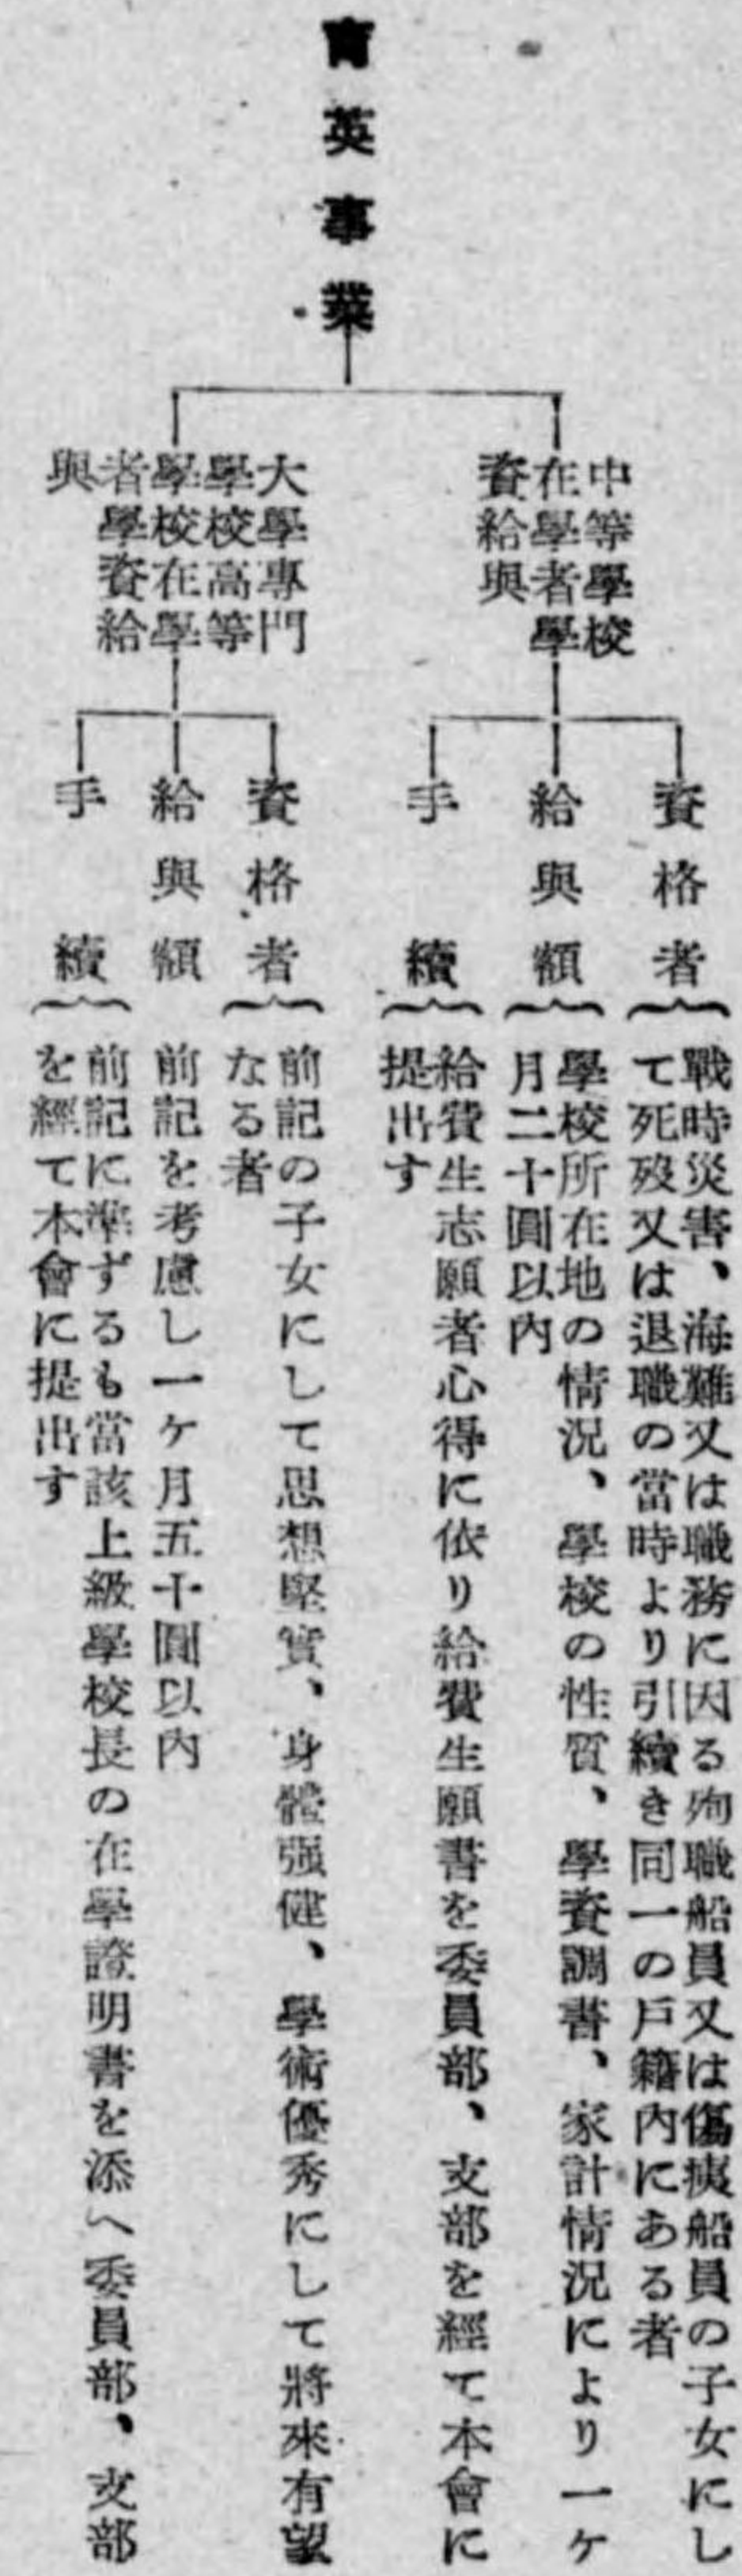 育英事業
中等學校
在學者學
資給與
資格者
戰時災害、海難又は職務に因る殉職船員又は傷痍船員の子女にし
て死歿又は退職の當時より引續き同一の戶籍內にある者
給與額
學校所在地の情況、學校の性質、學資調書、家計情況により一ケ
月二十圓以內
手續
給費生志願者心得に依り給費生願書を委員部、支部を經て本會に
提出す
大學專門
學校高等
學校在學
者學資給
與
資格者
前記の子女にして思想堅實、身體强健、學術優秀にして將來有望
なる者
給與額
前記を考慮し一ケ月五十圓以內
手續
前記に準ずるも當該上級學校長の在學證明書を添へ委員部、支部
を經て本會に提出す